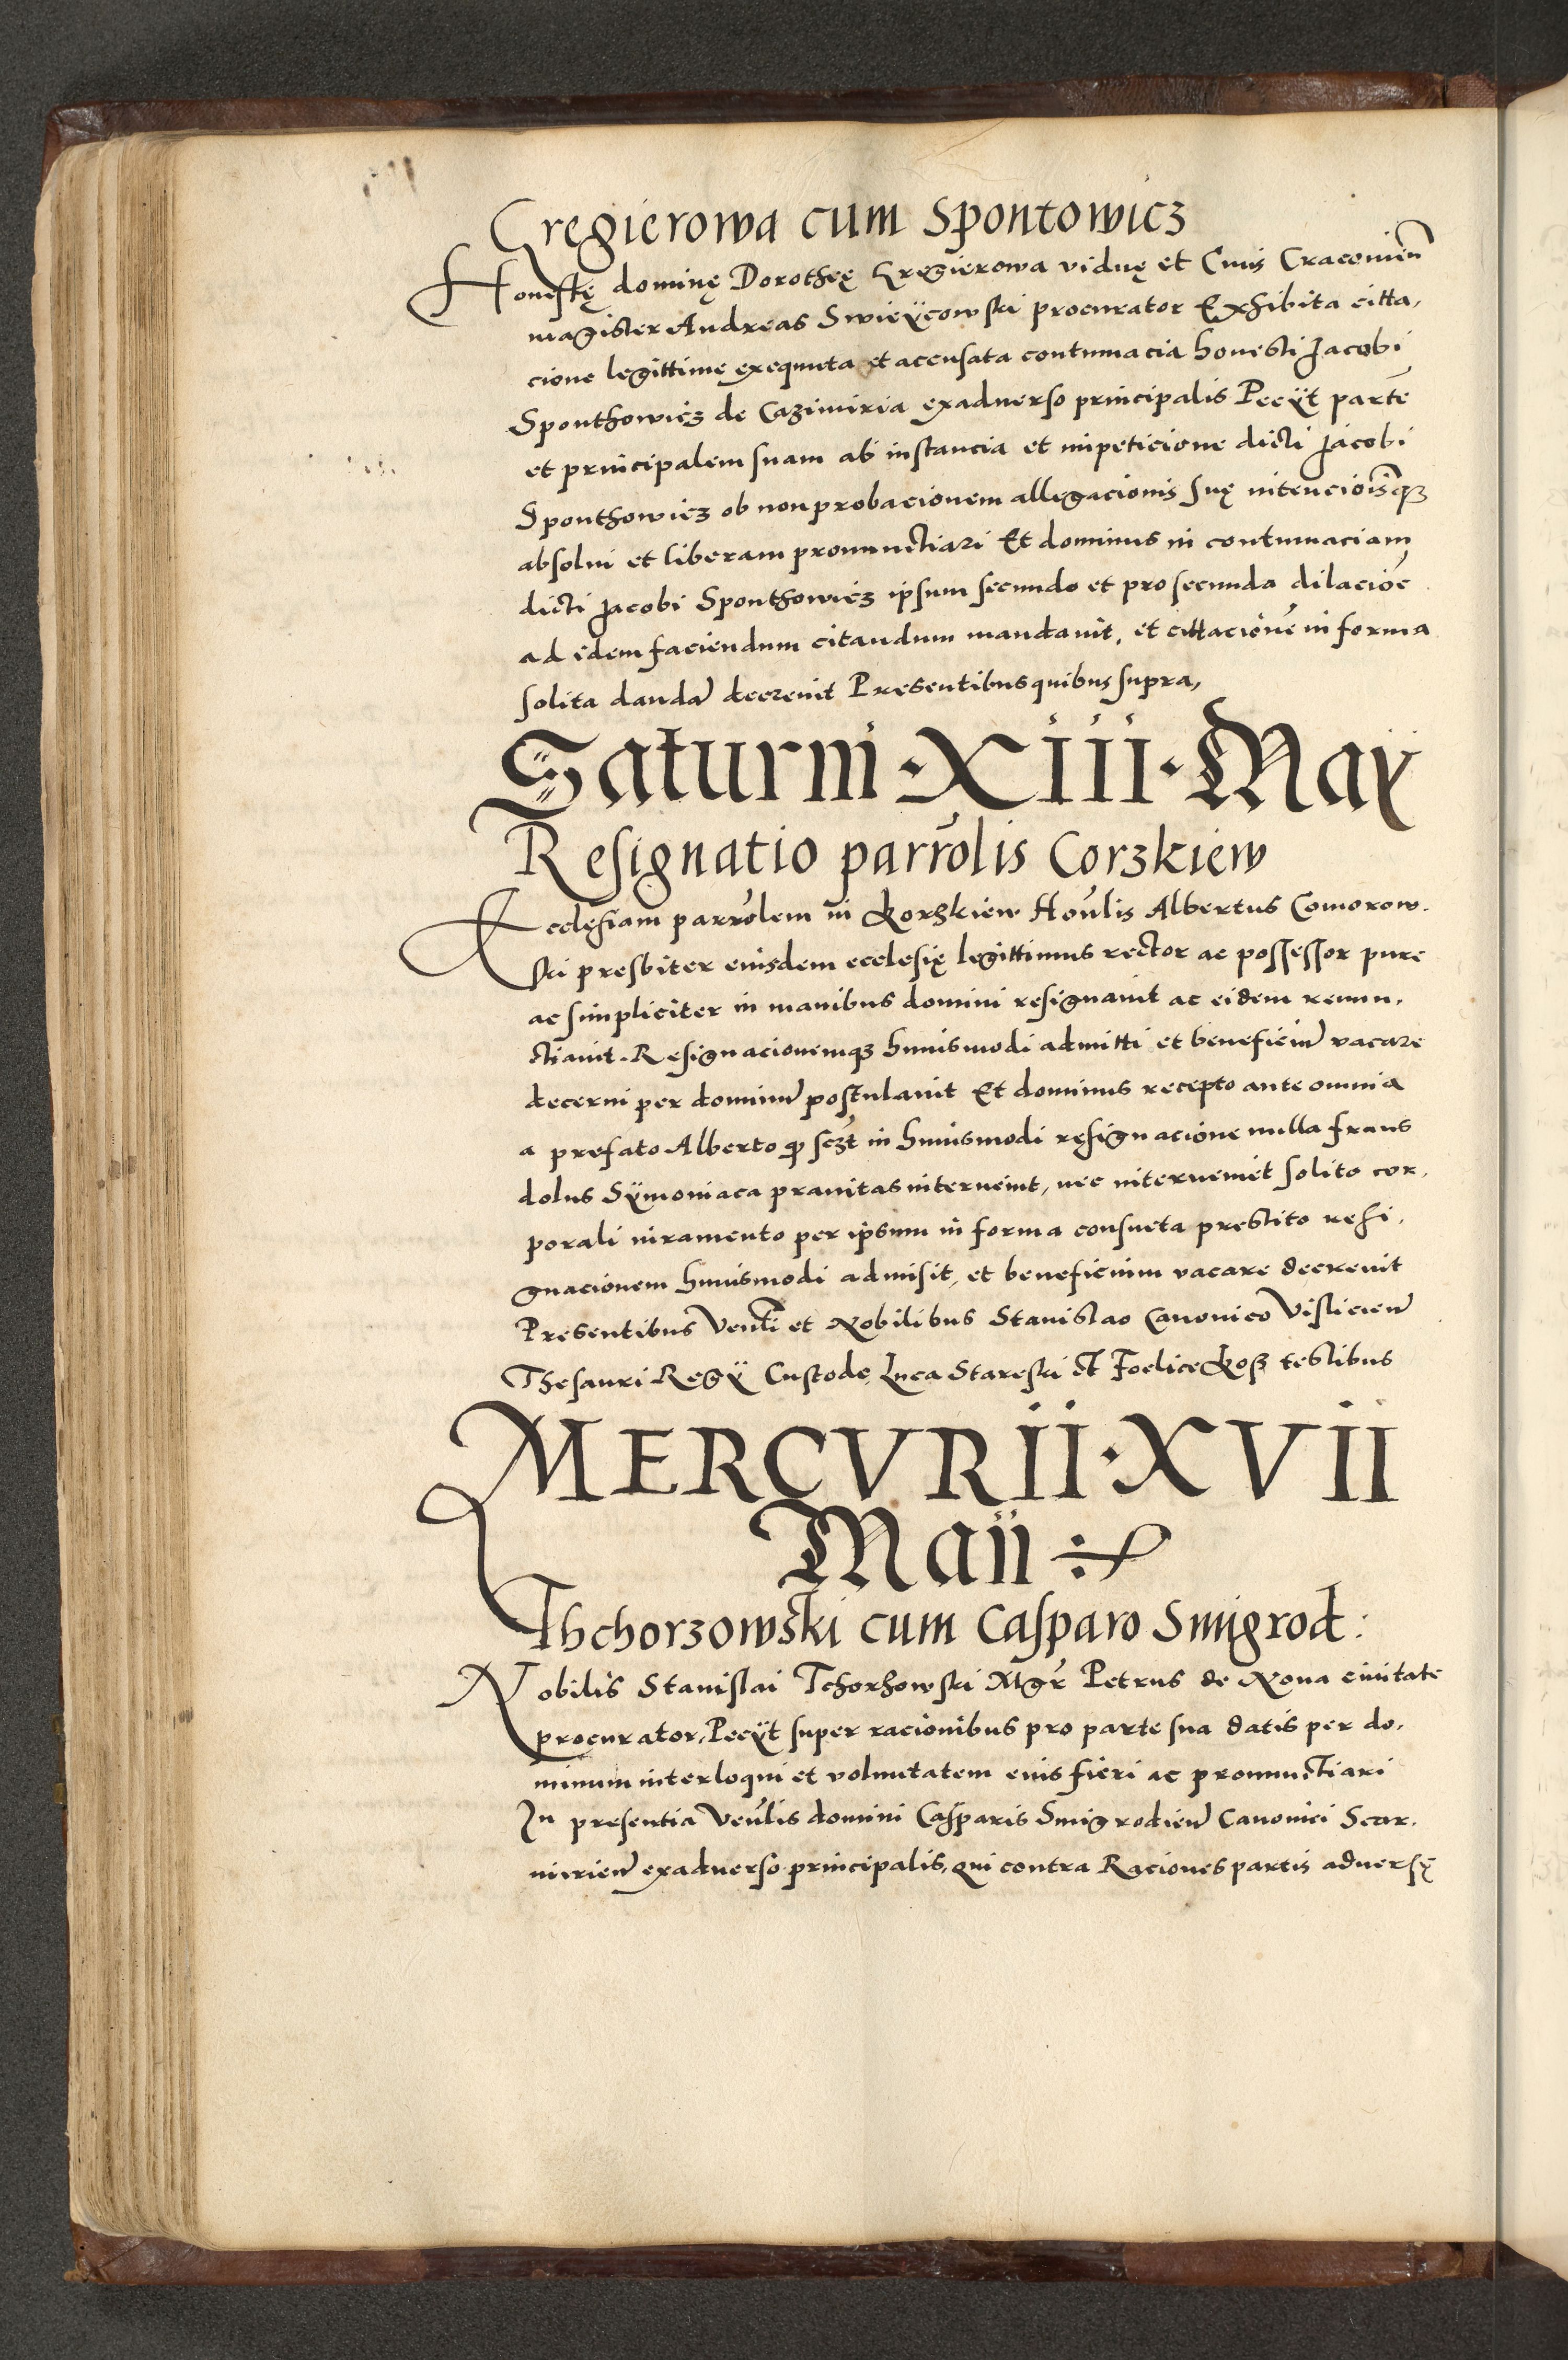 Gregierowa cum Spontowicz
Honestę dominę Dorotheę Gregierowa viduę et Civis Cracovien̄
magister Andreas Swieÿcowski procurator Exhibita citta,
cione legittime exequuta et accusata contumacia honesti Jacobi
Sponthowicz de Cazimiria exadverso principalis Peciÿt partē
et principalem suam ab instancia et impeticione dicti Jacobi
Sponthowicz ob non probacionem allegacionis suę intencioīsqȝ
absolvi et liberam pronunctiari Et dominus in contumaciam
dicti Jacobi Sponthowicz ipsum secundo et pro secunda dilacioē
ad idem faciendum citandum mandavit, et cittacionē in forma
solita dandā decrevit Presentibus quibus supra,
Saturni · XIII · Maÿ
Resignatio parrōlis Corzkiew
Ecclęsiam parrōlem in Korzkiew Hoūlis Albertus Comorow.
ski presbiter eiusdem ecclesię legittimus rector ac possessor pure
ac simpliciter in manibus domini resignavit ac eidem renun,
ctiavit. Resignacionemqȝ huiusmodi admitti et beneficiū vacare
decerni per dominū postulavit Et dominus recepto ante omnia
a prefato Alberto ꝙ sczt in huiusmodi resignacione nulla fraus
dolus Sÿmoniaca pravitas intervenit, nec interveniet solito cor,
porali iuramento per ipsum in forma consueta prestito resi,
gnacionem huiusmodi admisit, et beneficium vacare decrevit
Presentibus Venli et Nobilibus Stanislao Canonico Visliciēn
Thesauri Regÿ Custode, Luca Stareski et Foelice Kosz testibus
MERCVRII · XVII
Maii
Thchorzowski cum Casparo Smigrod:
Nobilis Stanislai Tchorhowski Mgr̄ Petrus de Nova civitate
procurator, Peciÿt super racionibus pro parte sua datis per do,
minum interloqui et voluntatem eius fieri ac pronunctiari
In presentia Veūlis domini Casparis Smigrodien̄ Canonici Scar.
mirien̄ exadverso principalis, qui contra Raciones partis adversę